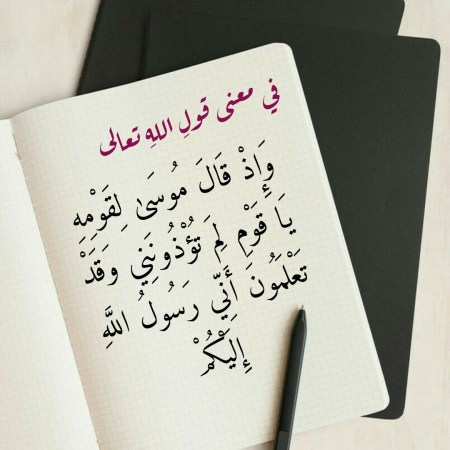 في معنى قولِ اللهِ تعالى
وَإِذْ قَالَ مُوسَىٰ لِقَوْمِهِ
يَا قَوْمِ لِمَ تُؤْذُونَنِي وَقَدْ
تَعْلَمُونَ أَنِّي رَسُولُ اللَّهِ
إِلَيْكُمْ